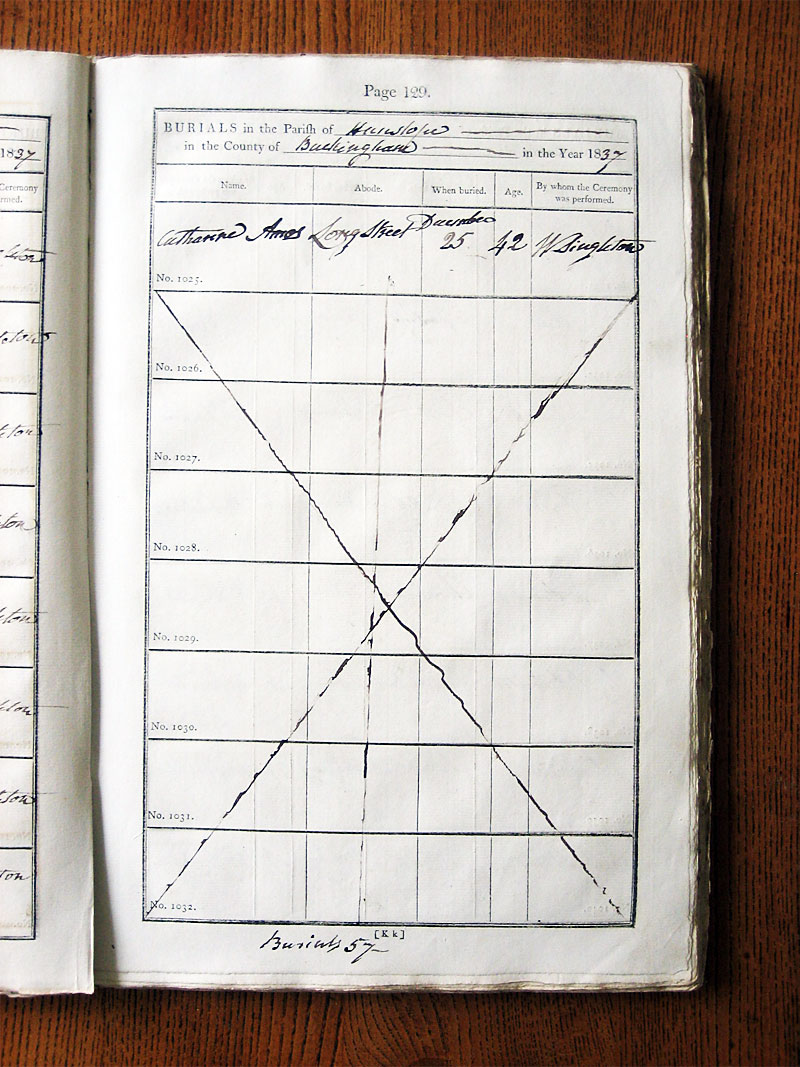 Page 129.
1837
BURIALS in the Parish of Hanslope
in the County of Buckingham in the Year 1837
Ceremony
rmed.
Name. Abode. When buried. Age. By whom the Ceremony was performed.
Catharine Amos Long Street December 25 42 W Singleton
No. 1025.
No. 1026.
No. 1027.
No. 1028.
No. 1029.
No. 1030.
No. 1031.
No. 1032.
[K k]
Burials 57